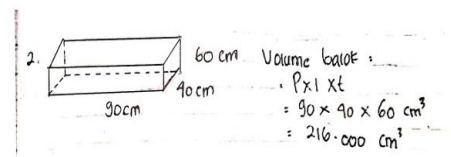 2.
60 cm
40 cm
90cm
Volume balok :
: P x l x t
= 90 x 40 x 60 cm³
= 216.000 cm³